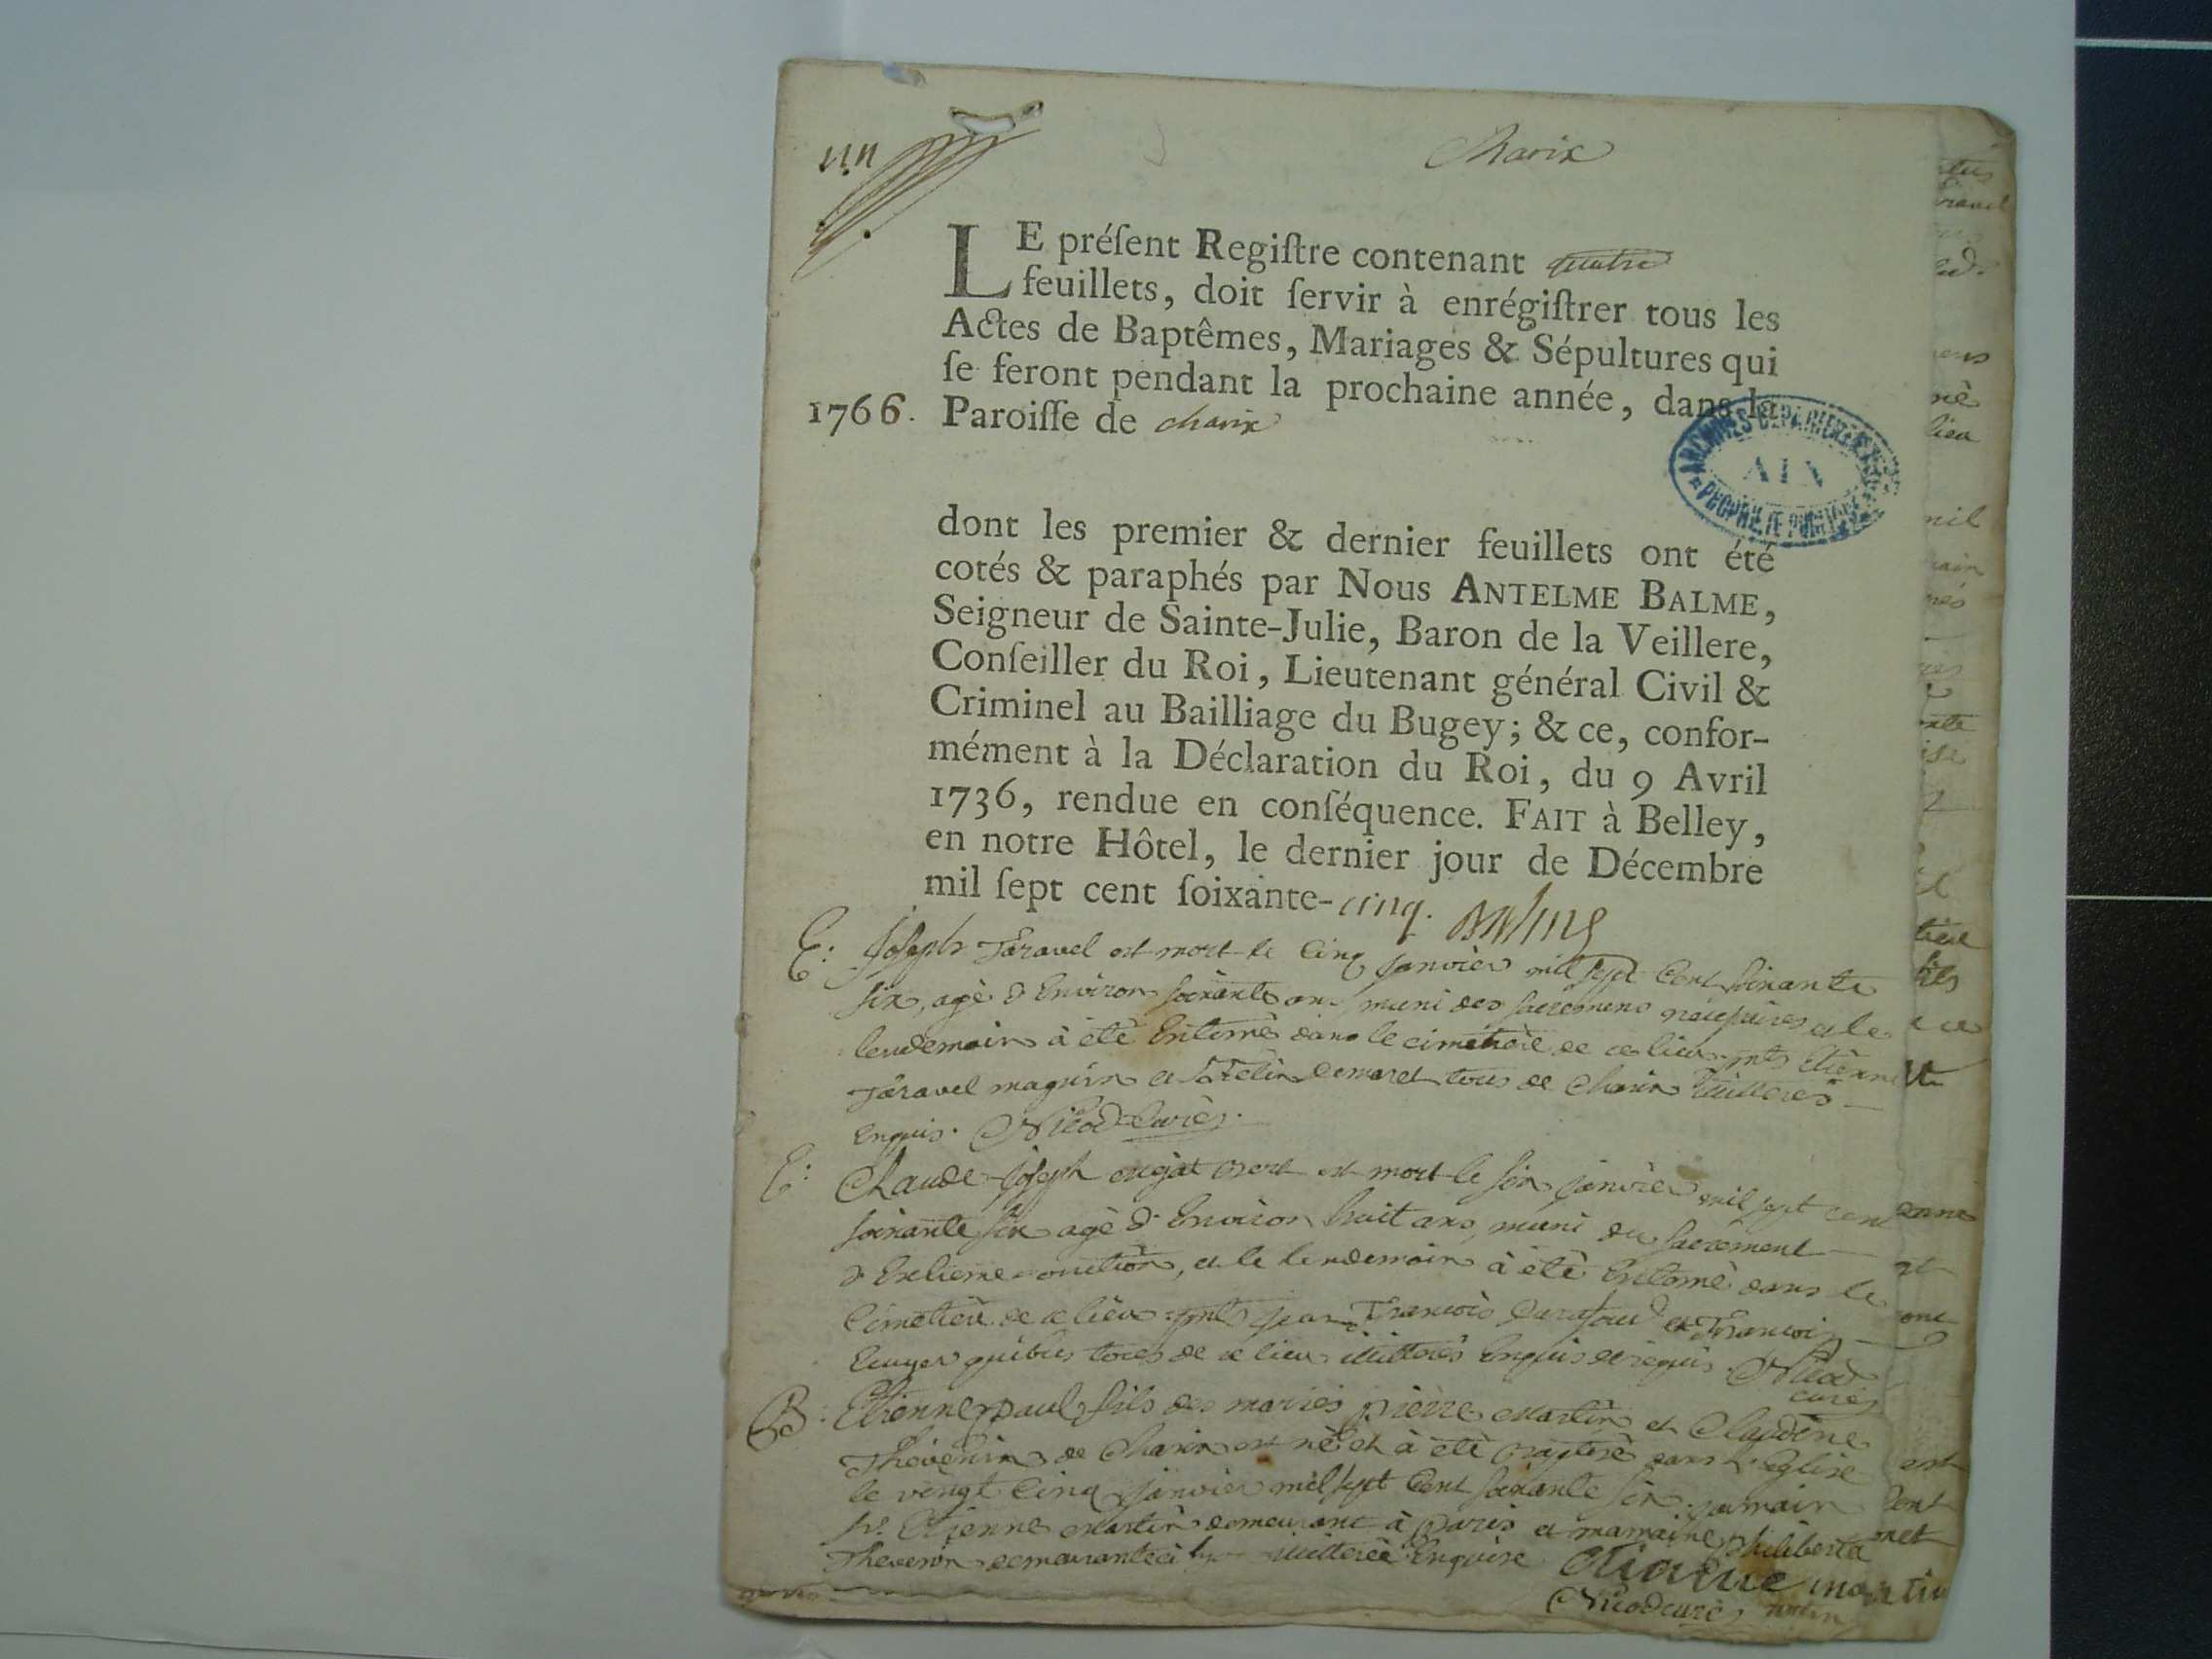 Charix
LE préſent Regiſtre contenant quatre
feuillets, doit ſervir à enrégiſtrer tous les
Actes de Baptêmes, Mariages & Sépultures qui
ſe feront pendant la prochaine année, dans la
1766. Paroiſſe de charix
ARCHIVES DEPARTEMENTALES
AIN
PROPRIETE PUBLIQUE
dont les premier & dernier feuillets ont été
cotés & paraphés par Nous ANTELME BALME,
Seigneur de Sainte-Julie, Baron de la Veillere,
Conſeiller du Roi, Lieutenant général Civil &
Criminel au Bailliage du Bugey; & ce, confor-
mément à la Déclaration du Roi, du 9 Avril
1736, rendue en conſéquence. FAIT à Belley,
en notre Hôtel, le dernier jour de Décembre
mil ſept cent ſoixante-cinq. Balme
E: Joseph Tàravel est mort le Cinq janvier mil sept Cent soixante
six, agè d'Environ soixante ans muni des sacremens nécessaires et le
lendemain à étè Enterrè dans le cimetière de ce lieu. pnts Etienne
Tàravel magnin et tous de Charix illiterés
Enquis. Nicod Curè.
E: Claude-joseph mort est mort le six janvier mil sept cent
soixante six agè d'Environ huit ans, muni du sacrement
d'Extreme-onction, et le lendemain à étè Enterrè dans le
Cimetière de ce lieu. pnts jean François et François
quibus tous de ce lieu illiterés Enquis et requis. Nicod
curé
B: Etienne paul fils des mariés pièrre Martin et Claudine
Thévenin de Charix est né et à étè baptisè dans l'Eglise
le vingt Cinq janvier mil sept Cent soixante six. parrain
sr. Etienne Martin demeurant à paris et marraine philiberte
Thevenin demeurante illiterée Enquise Etienne martin
Nicod curè